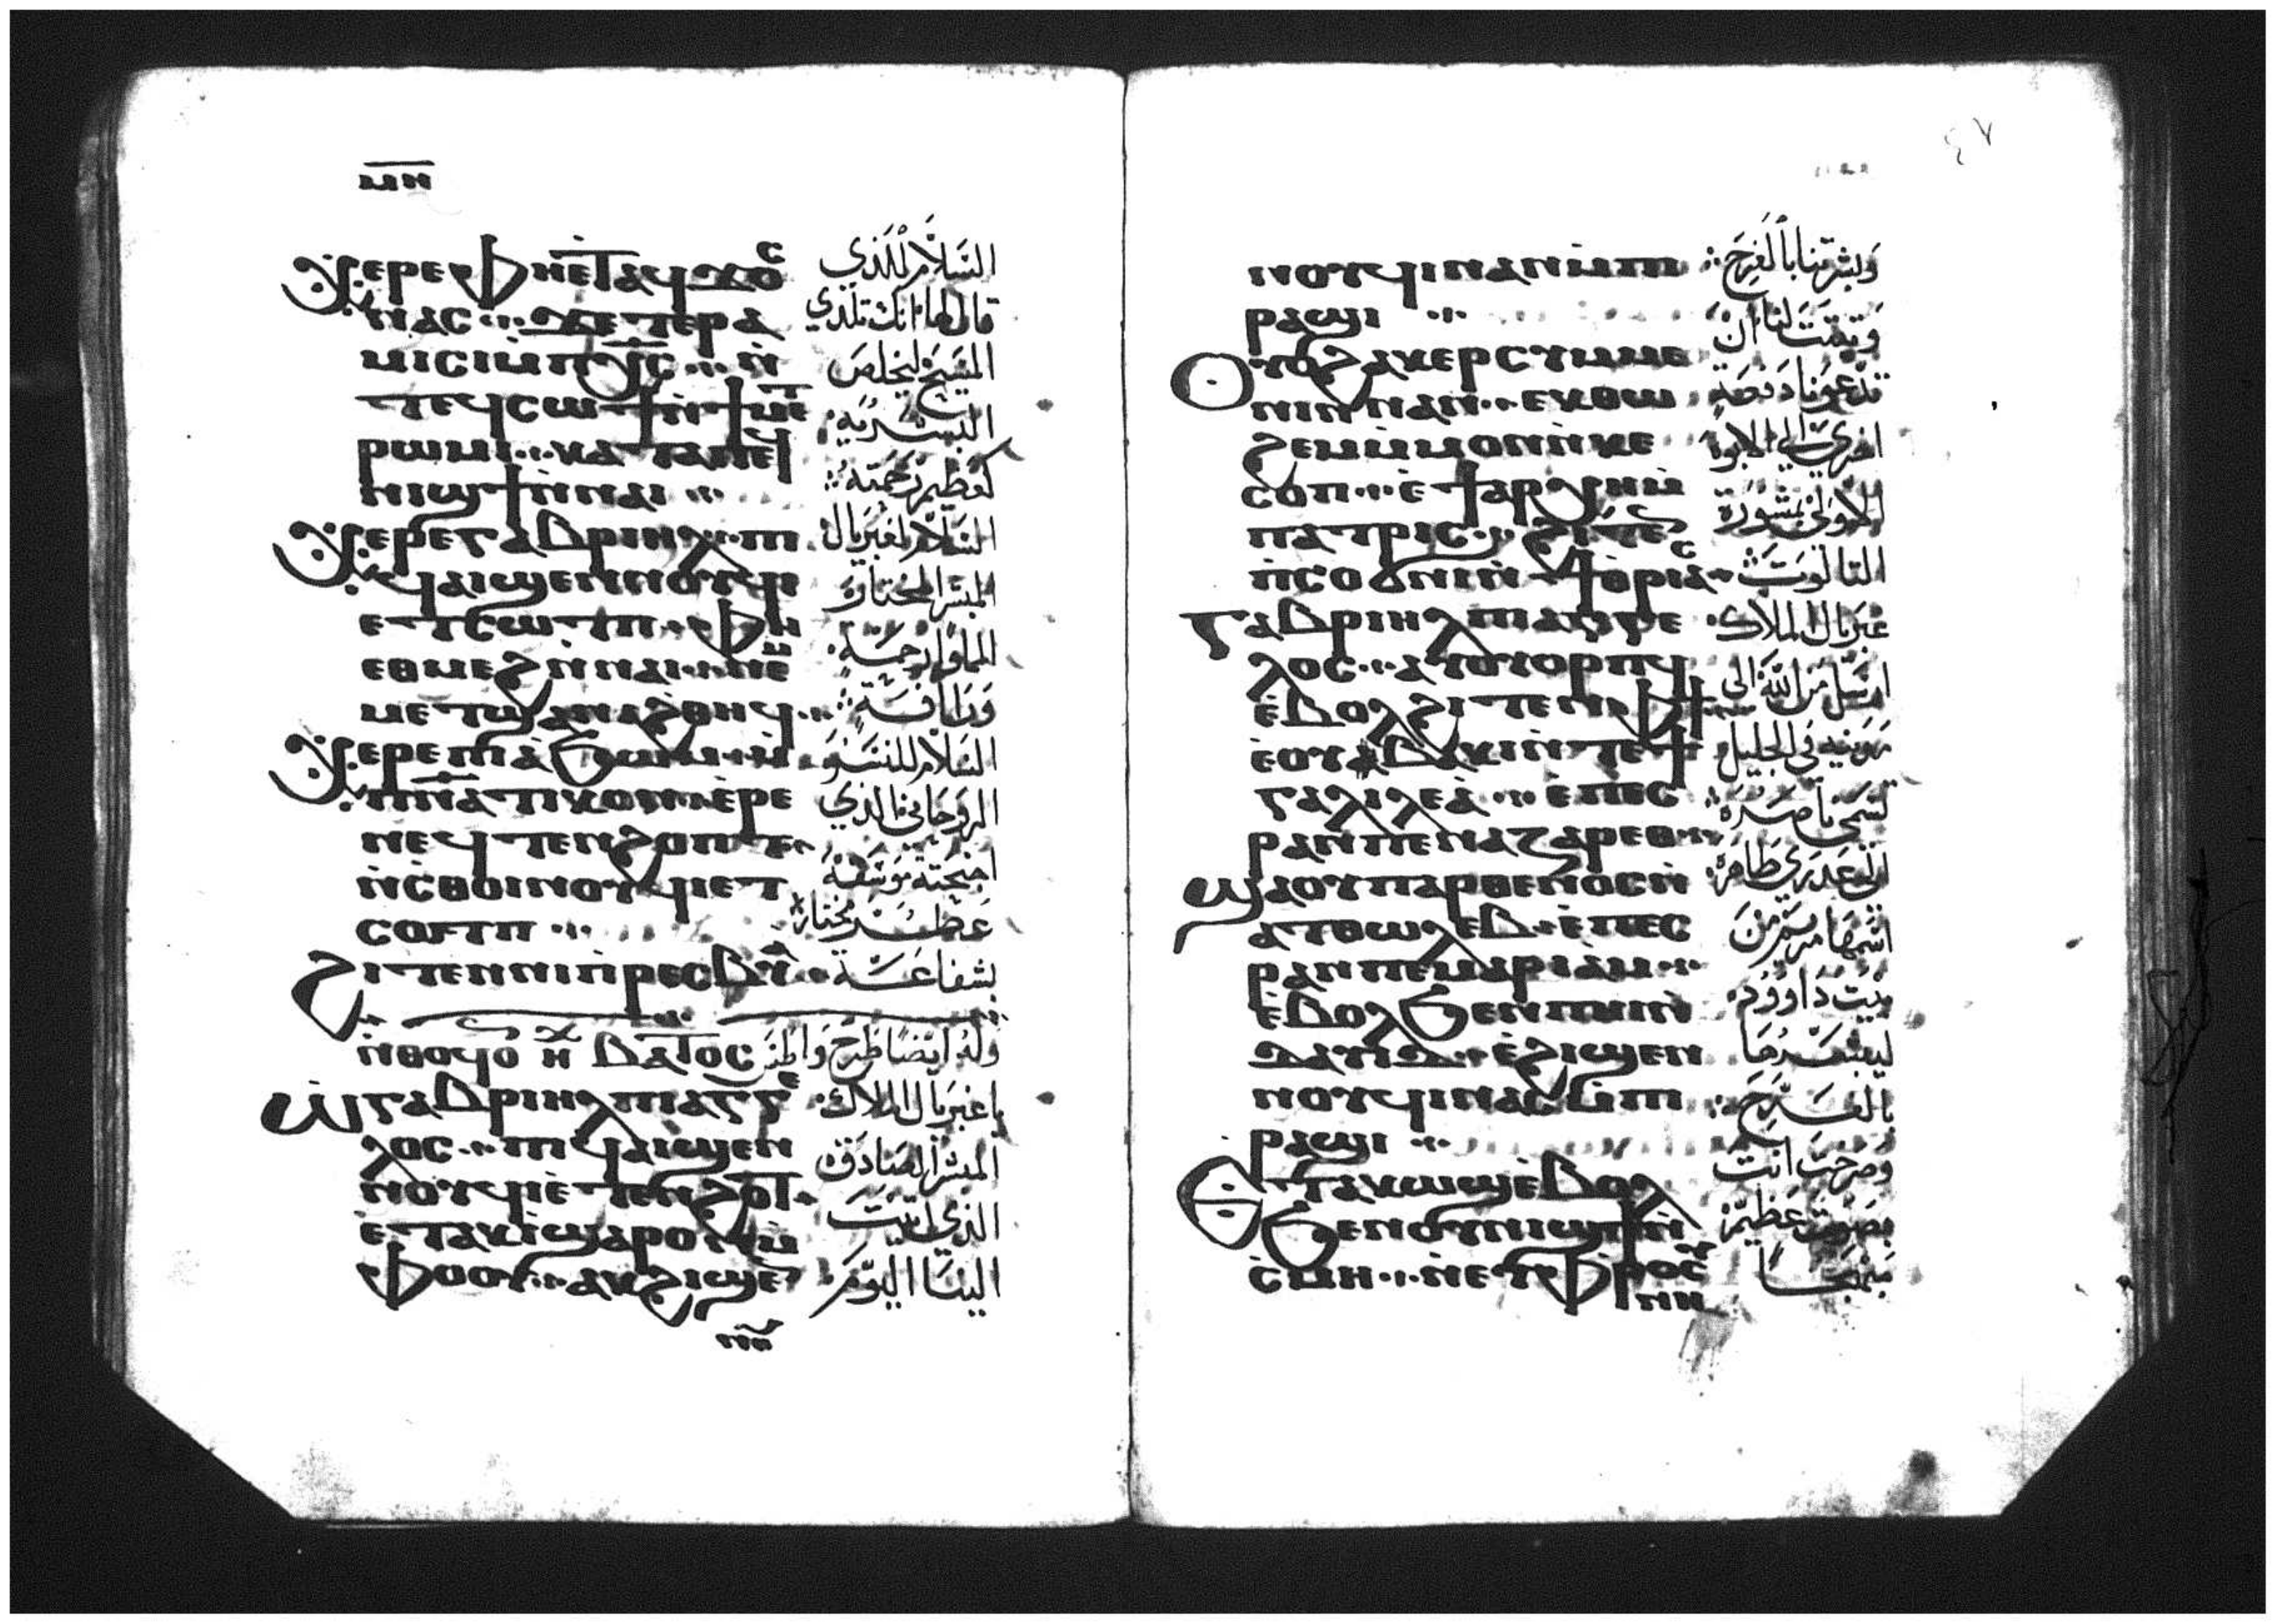 ⲙⲏ
ⲭⲉⲣⲉ ⲫⲏⲉⲧⲁϥϫⲟⲥ
ⲛⲁⲥ ϫⲉ ⲧⲉⲣⲁ
ⲙⲓⲥⲓ ⲙ̀ⲡⲭ̅ⲥ̅ ⲛ̀
ⲧⲉϥⲥⲱϯ ⲛ̀ϯⲙⲉⲧ
ⲣⲱⲙⲓ ⲕⲁⲧⲁ ⲡⲉϥ
ⲛⲓϣϯ ⲛ̀ⲛⲁⲓ
ⲭⲉⲣⲉ ⲅⲁⲃⲣⲓⲏⲗ ⲡⲓ
ϥⲁⲓϣⲉⲛⲛⲟⲩϥⲓ
ⲉⲧⲥⲱⲧⲡ ⲫⲏ
ⲉⲑⲙⲉϩ ⲛ̀ⲛⲁⲓ ⲛⲉⲙ
ⲙⲉⲧϣⲁⲛⲁϩⲑⲏϥ
ⲭⲉⲣⲉ ⲡⲓⲁ̀ϧⲱⲙ ⲙ̀
ⲡ̅ⲛ̅ⲁⲧⲓⲕⲟⲛ ⲉ̀ⲣⲉ
ⲛⲉϥⲧⲉⲛϩ ⲟⲡⲧ
ⲛ̀ⲥⲑⲟⲓⲛⲟⲩϥⲓ ⲉⲧ
ⲥⲟⲧⲡ
ϩⲓⲧⲉⲛ ⲛⲓⲡ̀ⲣⲉⲥⲃⲩ̀
ⲛ̀ⲑⲟϥ ⲟⲛ ⲏⲭ ⲃⲁⲧⲟⲥ
ⲱ̀ ⲅⲁⲃⲣⲓⲏⲗ ⲡⲓⲁⲅⲅⲉ
ⲗⲟⲥ ⲡⲓϥⲁⲓϣⲉⲛ
ⲛⲟⲩϥⲓ ⲉ̀ⲧⲉⲛϩⲟⲧ
ⲉ̀ⲧⲁⲕⲓ̀ ϣⲁⲣⲟⲛ ⲙ̀
ⲫⲟⲟⲩ ⲁⲕϩⲓϣⲉ
ⲛⲛ
السلام للذي
قال لها انك تلدي
المسيح ليخلص
البشرية
كعظيم رحمته
السلام لغبريال
المبشر المختار
المملوا رحمة
ورافة
السلام للنسر
الروحاني الذي
اجنحته موسقة
عطر مختار
بشفاعة
وله ايضا طرح واطس
يا غبريال الملاك
المبشر الصادق
الذي اتيت
الينا اليوم
٤٧
ⲛⲟⲩϥⲓ ⲛⲁⲛ ⲙ̀ⲡⲓ
ⲣⲁϣⲓ
ⲟⲩⲟϩ ⲁⲕⲉⲣⲥⲩⲙⲙⲉ
ⲛⲓⲛ ⲛⲁⲛ ⲉⲕⲑⲱ
ϩⲉⲙ ⲙ̀ⲙⲟⲛ ⲛ̀ⲕⲉ
ⲥⲟⲡ ⲉ̀ϯⲁⲣⲭⲏⲙ̀
ⲡⲁⲧⲣⲓⲥ ϩⲓⲧⲉ
ⲛ̀ⲥⲟϭⲛⲓ ⲛ̀ϯⲑⲣⲓⲁⲥ
ⲅⲁⲃⲣⲓⲏⲗ ⲡⲓⲁⲅⲅⲉ
ⲗⲟⲥ ⲁⲩⲟⲩⲟⲣⲡϥ
ⲉ̀ⲃⲟⲗ ϩⲓⲧⲉⲛ ⲫϯ
ⲉ̀ⲟⲩⲃⲁⲕⲓ ⲛ̀ⲧⲉ ϯ
ⲅⲁⲗⲓⲗⲉⲁ̀ ⲉ̀ⲡⲉⲥ
ⲣⲁⲛ ⲡⲉ ⲛⲁⲍⲁⲣⲉⲑ
ϣⲁ ⲟⲩⲡⲁⲣⲑⲉⲛⲟⲥ ⲛ̀
ⲁⲧⲑⲱⲗⲉⲃ ⲉ̀ⲡⲉⲥ
ⲣⲁⲛ ⲡⲉ ⲙⲁⲣⲓⲁⲙ
ⲉ̀ⲃⲟⲗ ϧⲉⲛ ⲡⲏⲓ ⲛ̀
ⲇⲁⲩⲓⲇ ⲉ̀ϩⲓϣⲉⲛ
ⲛⲟⲩϥⲓ ⲛⲁⲥ ⲙ̀ⲡⲓ
ⲣⲁϣⲓ
ⲉⲧⲁⲕⲱϣ ⲉ̀ⲃⲟⲗ
ϧⲉⲛ ⲟⲩⲛⲓϣϯ ⲛ̀
ⲥ̀ⲙⲏ ⲛⲉⲩⲫⲣⲟⲥⲩ
ⲛⲏ
وبشرتنا بالفرح
وتقمت لنا ان
تدعونا دفعة
اخري الي الابوا
الاولي بمشورة
الثالوث
غبريال الملاك
ارسل من الله الي
مدينة في الجليل
تسمى ناصرة
الي عدري طاهرة
اسمها مريم من
بيت داوود
ليبشرها
بالفرح
وصرخت انت
بصوت عظيم
مبتهجا